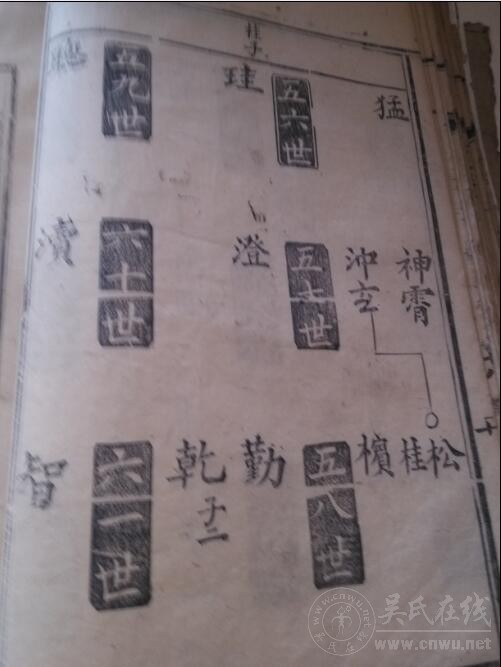 桂子
猛
神霄
松
桂
沖玄
檳
五六世
五七世
五八世
珪
澄
勤
乾
子二
五九世
六十世
六一世
瀆
智
吴氏在线
www.cnwu.net